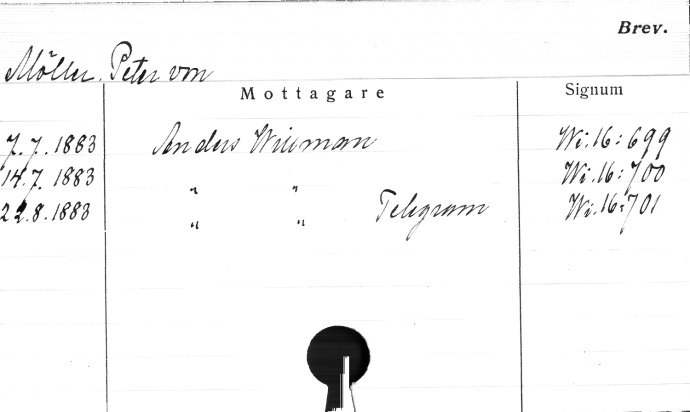 Brev.
Möller, Peter von
Mottagare Signum
7.7.1883 Anders Willman Wi.16:699
14.7.1883 " " Wi.16:700
22.8.1883 " " Telegram Wi.16:701